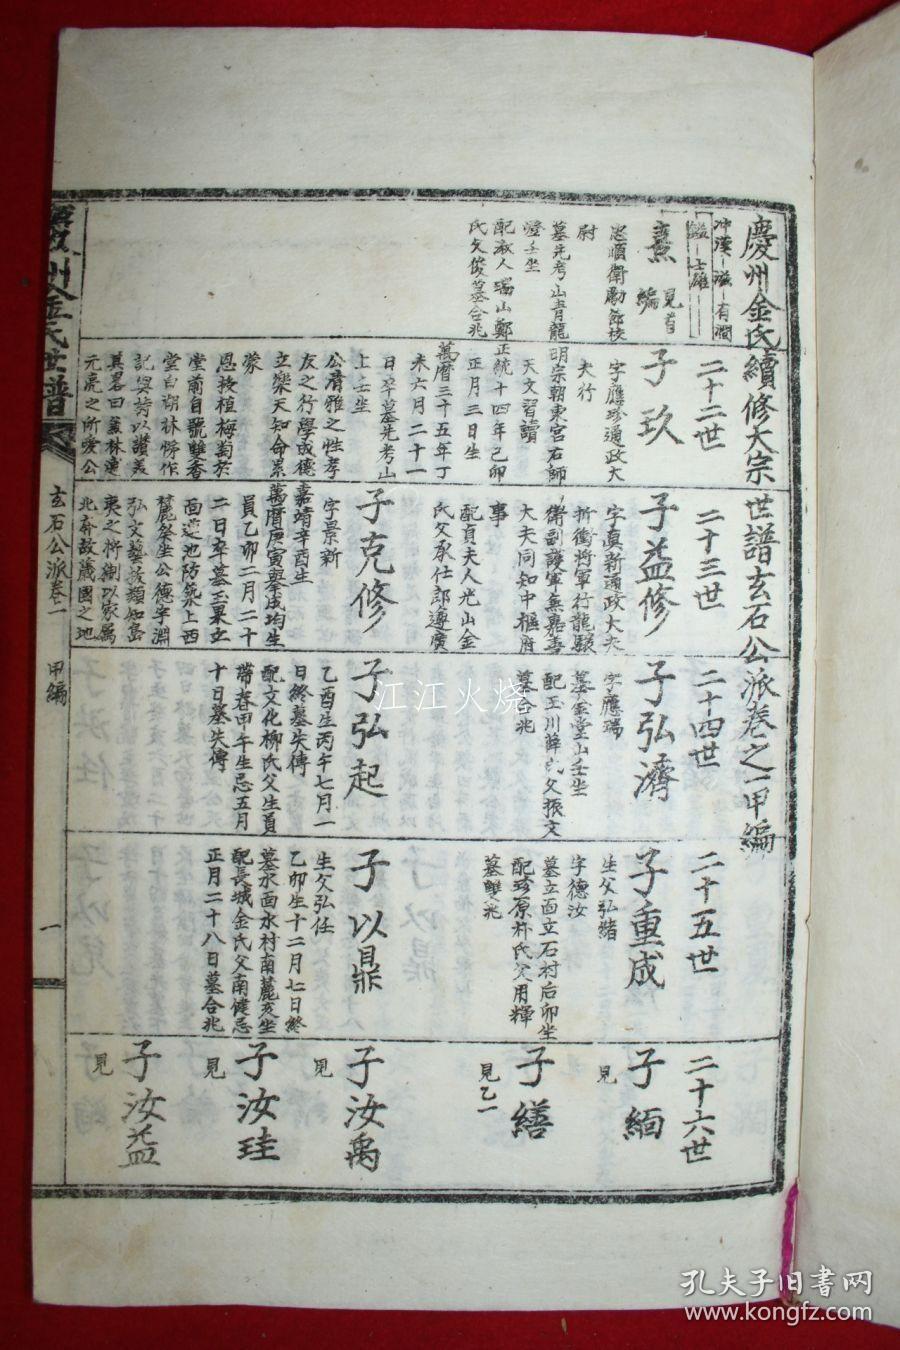 慶州金氏續修大宗世譜玄石公派卷之一甲編
二十二世
二十三世
二十四世
二十五世
二十六世
冲漢
熹
見首編
尉
墓先考山青龍
子玖
字應珍通政大
夫行
明宗朝東宮右師
天文習讀
正統十四年己卯
正月三日生
萬曆三十五年丁
未六月二十一
日卒墓先考山
上壬坐
公清雅之性孝
友之行學成德
立樂天知命累
蒙
恩技植梅菊於
堂前自號雙香
堂白湖林悌作
記與詩以讚美
元
子益修
字真新通政大夫
折衝將軍行龍驤
衛副護軍無嘉善
大夫同知中樞府
事
配貞夫人光山金
氏父承仕郎遵廣
子克修
字景新
嘉靖辛酉生
萬曆庚寅與參成均生
員乙卯二月二十
二日卒墓玉果立
面巡池防築上西
麓癸坐公德宇淵
子弘濟
字應瑞
墓金堂山壬坐
配玉川薛氏父振文
墓合兆
子弘起
乙酉生丙午七月一
日終墓失傳
配文化柳氏父生員
帶春甲午生忌五月
十日墓失傳
子重成
生父弘緒
字德汝
墓立面立石村后卯坐
配珍原朴氏父用輝
墓雙兆
子以鼎
生父弘任
乙卯生十二月七日終
墓水面水村南麓亥坐
配長城金氏父南健忌
正月二十八日墓合兆
子緬
見
子繕
見乙一
子汝禹
見
子汝珪
見
子汝益
見
慶州金氏世譜
玄石公派卷之一
甲編
一
江江火烧
孔夫子旧书网
www.kongfz.com